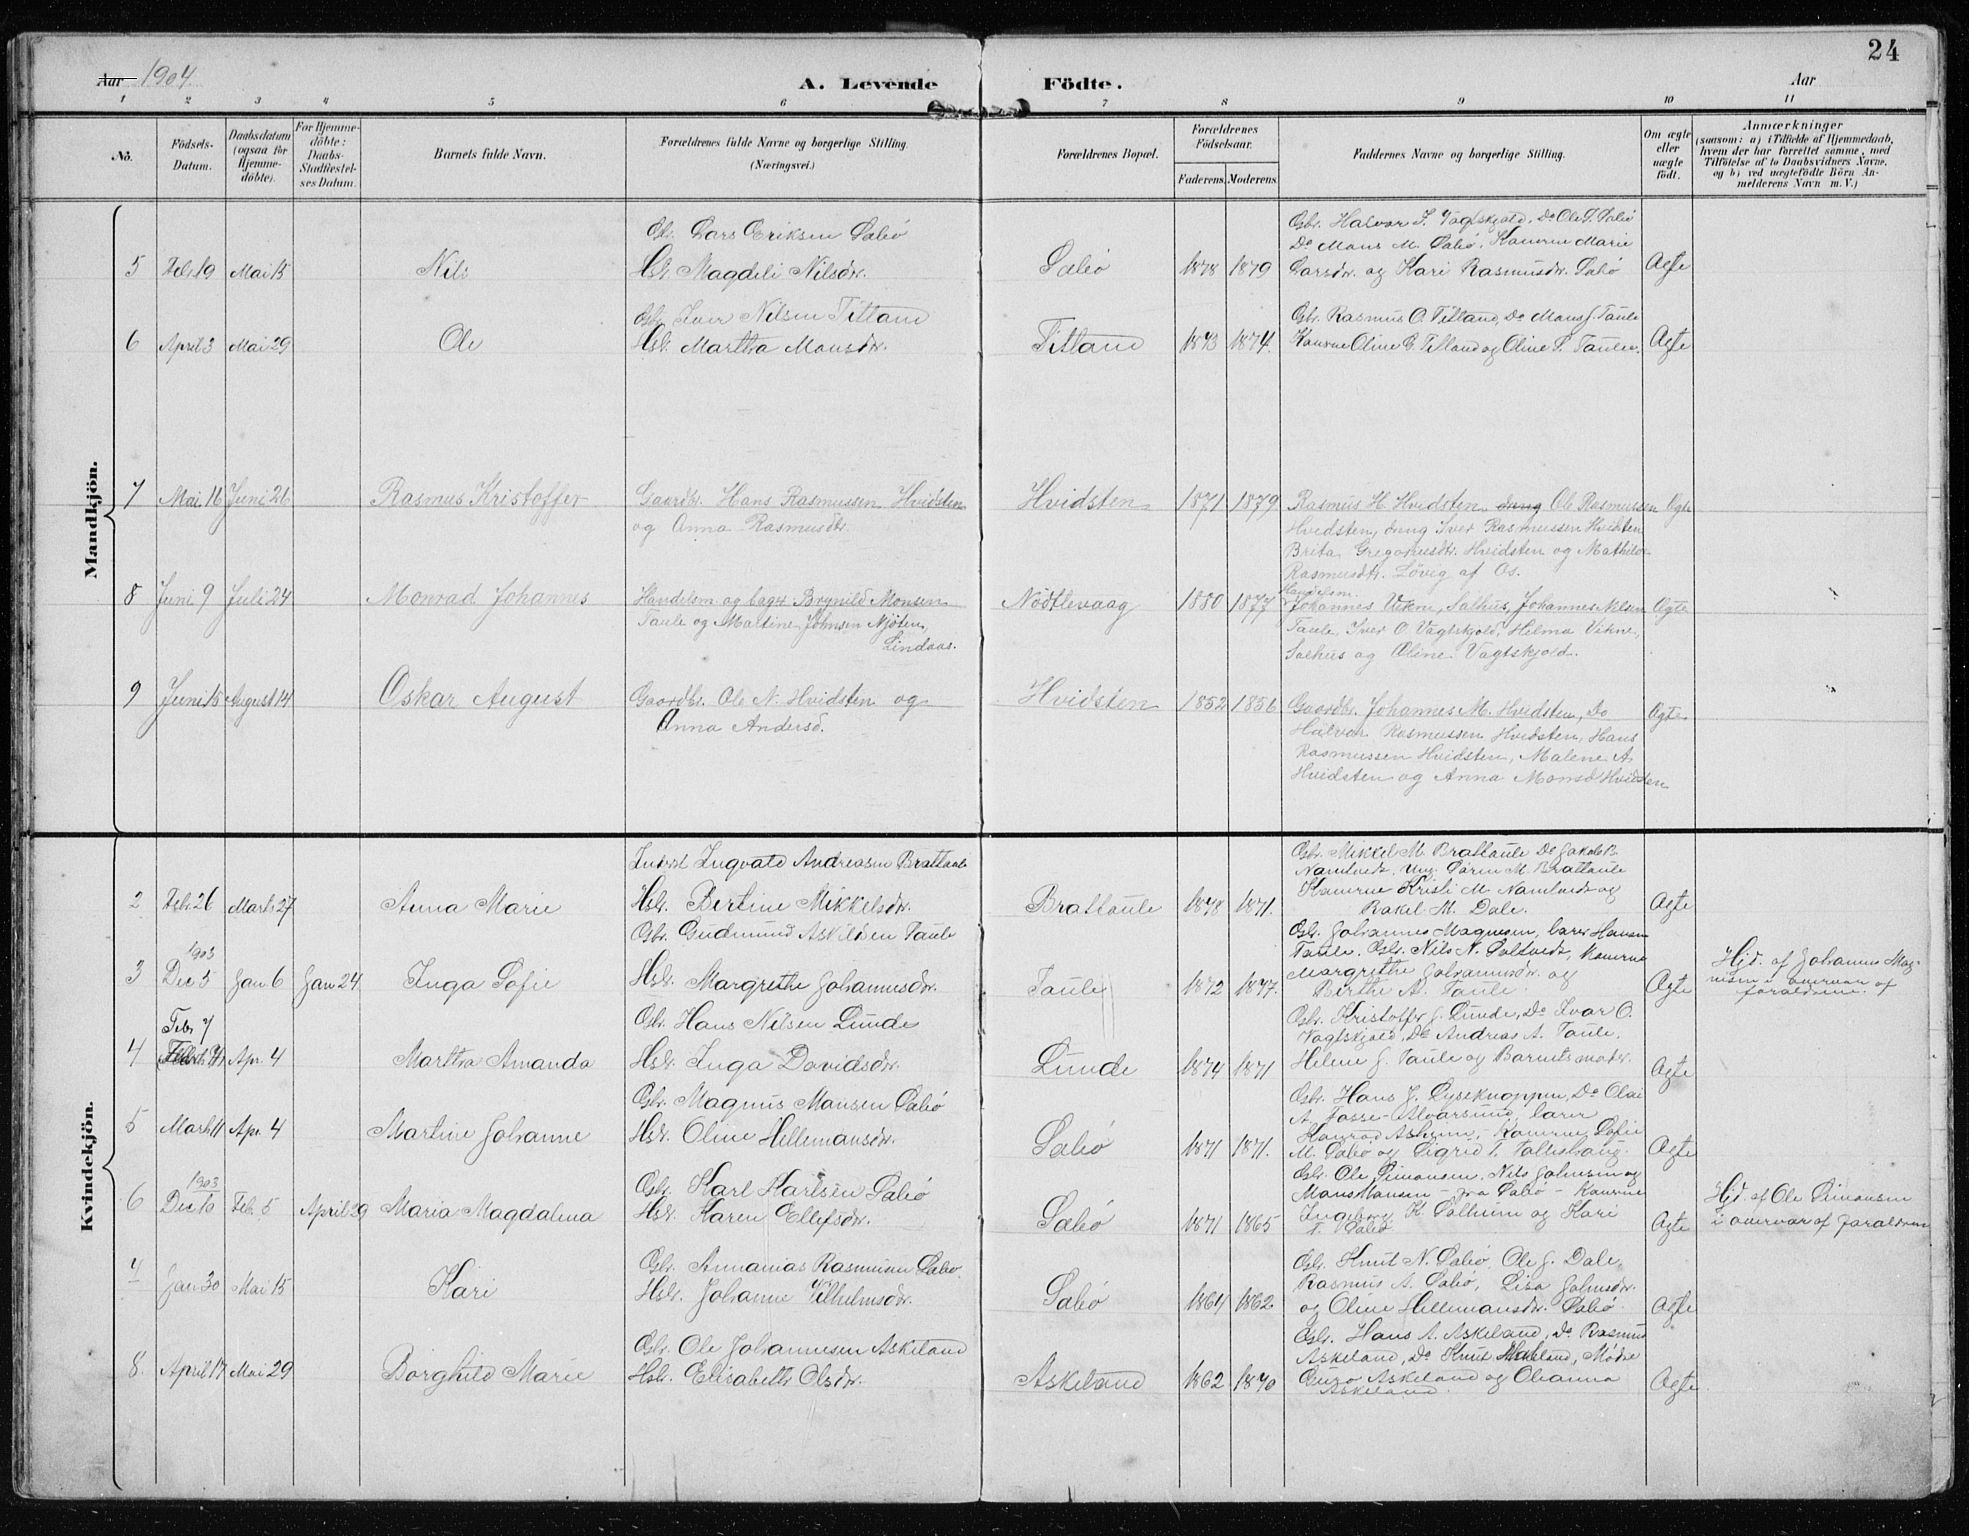 24
Aar 1904.
A. Levende Födte.
Aar
1 2 3 4 5 6 7 8 9 10 11
No.
Födsels-Datum.
Daabsdatum (ogsaa for Hjemme-döbte).
For Hjemme-döbte: Daabs-Stadfæstel-ses Datum.
Barnets fulde Navn.
Forældrenes fulde Navne og borgerlige Stilling. (Næringsvei.)
Forældrenes Bopæl.
Forældrenes Födselsaar.
Faderens. Moderens.
Faddernes Navne og borgerlige Stilling.
Om ægte eller uægte födt.
Anmærkninger
(saasom: a) i Tilfælde af Hjemmedaab, hvem der har forrettet samme, med Tilföielse af to Daabsvidners Navne, og b) ved uægtefödte Börn An-melderens Navn m. V.)
Mandkjön.
Gbr. Lars Eriksen Sæbø
5 Feb. 19 Mai 15 Nils Hst. Magdeli Nilsdr. Sæbø 1878 1879
Gbr. Halvar I. Vagtskjold, Do Ole I. Sæbø
Do Mons M. Sæbø, Konerne Marie
Larsdr. og Kari Rasmusdr. Sæbø Ægte
Gbr. Iver Nilsen Titland
6 April 3 Mai 29 Ole Hst. Martha Monsdr. Titland 1873 1874.
Gbr. Rasmus O. Titland, Do Mons J. Taule
Konerne Oline G. Titland og Oline P. Taule. Ægte
7 Mai 16 Juni 26 Rasmus Kristoffer Gaardbr. Hans Rasmussen Hvidsten
og Anna Rasmusdtr. Hvidsten 1871 1879
Rasmus H. Hvidsten, Ole Rasmussen
Hvidsten, ung Iver Rasmussen Hvidsten
Brita Gregoriusdtr. Hvidsten og Mathilde
Rasmusdtr. Lövig af Os. Ægte
8 Juni 9 Juli 24 Monrad Johannes Handelsm. og bager Brynild Monsen
Taule og Martine Johnsen Njøten,
Lindaas. Nödtlevaag 1880 1877
Handelsm.
Johannes Vikne, Salhus, Johannes Nilsen
Taule, Iver O. Vagtskjold, Helma Vikne,
Salhus og Oline Vagtskjold. Ægte
9 Juni 15 August 14 Oskar August Gaardbr. Ole N. Hvidsten og
Anna Andersd. Hvidsten 1852 1856
Gaardbr. Johannes M. Hvidsten, Do
Halvor Rasmussen Hvidsten, Hans
Rasmussen Hvidsten, Malene A.
Hvidsten og Anna Monsd Hvidsten Ægte
Kvindekjön.
Inderst Ingvald Andreasen Brattaule
2 Feb. 26 Marts 27 Anna Marie Hst. Bertine Mikkelsdr. Brattaule 1878 1871.
Gbr. Mikkel M. Brattaule Do Jakob B.
Namtvedt, Ung. Søren M. Brattaule
Konerne Kristi M. Namtvedt og
Rakel M. Dale. Ægte
Gbr. Gudmund Askildsen Taule
1903
3 Dec 5 Jan 6 Jan 24 Inga Sofie Hst. Margrethe Johannesdr. Taule 1872 1877.
Gbr. Johannes Magnesen, bager Hansen
Taule, Gbr. Nils N. Soltvedt, Konerne
Margrethe Johannesdr. og
Berthe A. Taule. Ægte
Hjd. af Johannes Mag-
nesen i overvær af
forældrene.
Gbr. Hans Nilsen Lunde
Feb 7
4 Apr. 4 Martha Amanda Hst. Inga Davidsdr. Lunde 1874 1871
Gbr. Kristoffer J. Lunde, Do Ivar O.
Vagtskjold, Do Andreas A. Taule,
Helene J. Taule og Barnets moder. Ægte
Gbr. Magnus Monsen Sæbø
5 Marts 11 Apr. 4 Martine Johanne Hst. Oline Hellemansdr. Sæbø 1871 1871.
Gbr. Hans J. Do Olai
A. Fosse - Alvarsund,
Konerne Sofie
M. Sæbø og Sigrid T. Ægte
Gbr. Karl Karlsen Sæbø
1903
6 Dec 10 Feb. 5 April 29 Maria Magdalena Hst. Karen Ellefsdr. Sæbø 1871 1865
Gbr. Ole Simonsen, Nils Johnsen og
Mons Monsen fra Sæbø - Konerne
Ingeborg K. Solheim og Kari
T. Sæbø Ægte
Hjd. af Ole Simonsen
i overvær af forældrene
Gbr. Annanias Rasmusen Sæbø.
7 Jan 30 Mai 15 Kari Hst. Johanne Vilhelmsdr. Sæbø 1864 1862
Gbr. Knut N. Sæbø, Ole J. Dale,
Rasmus A. Sæbø, Lisa Johnsdr.
og Oline Hellemansdr. Sæbø. Ægte
Gbr. Ole Johannesen Askeland
8. April 17 Mai 29 Borghild Marie Hst. Elisabeth Olsdr. Askeland 1862 1870
Gbr. Hans A. Askeland, Do Rasmus
Askeland, Do Knut
Guro Askeland og Olianna
Askeland. Ægte